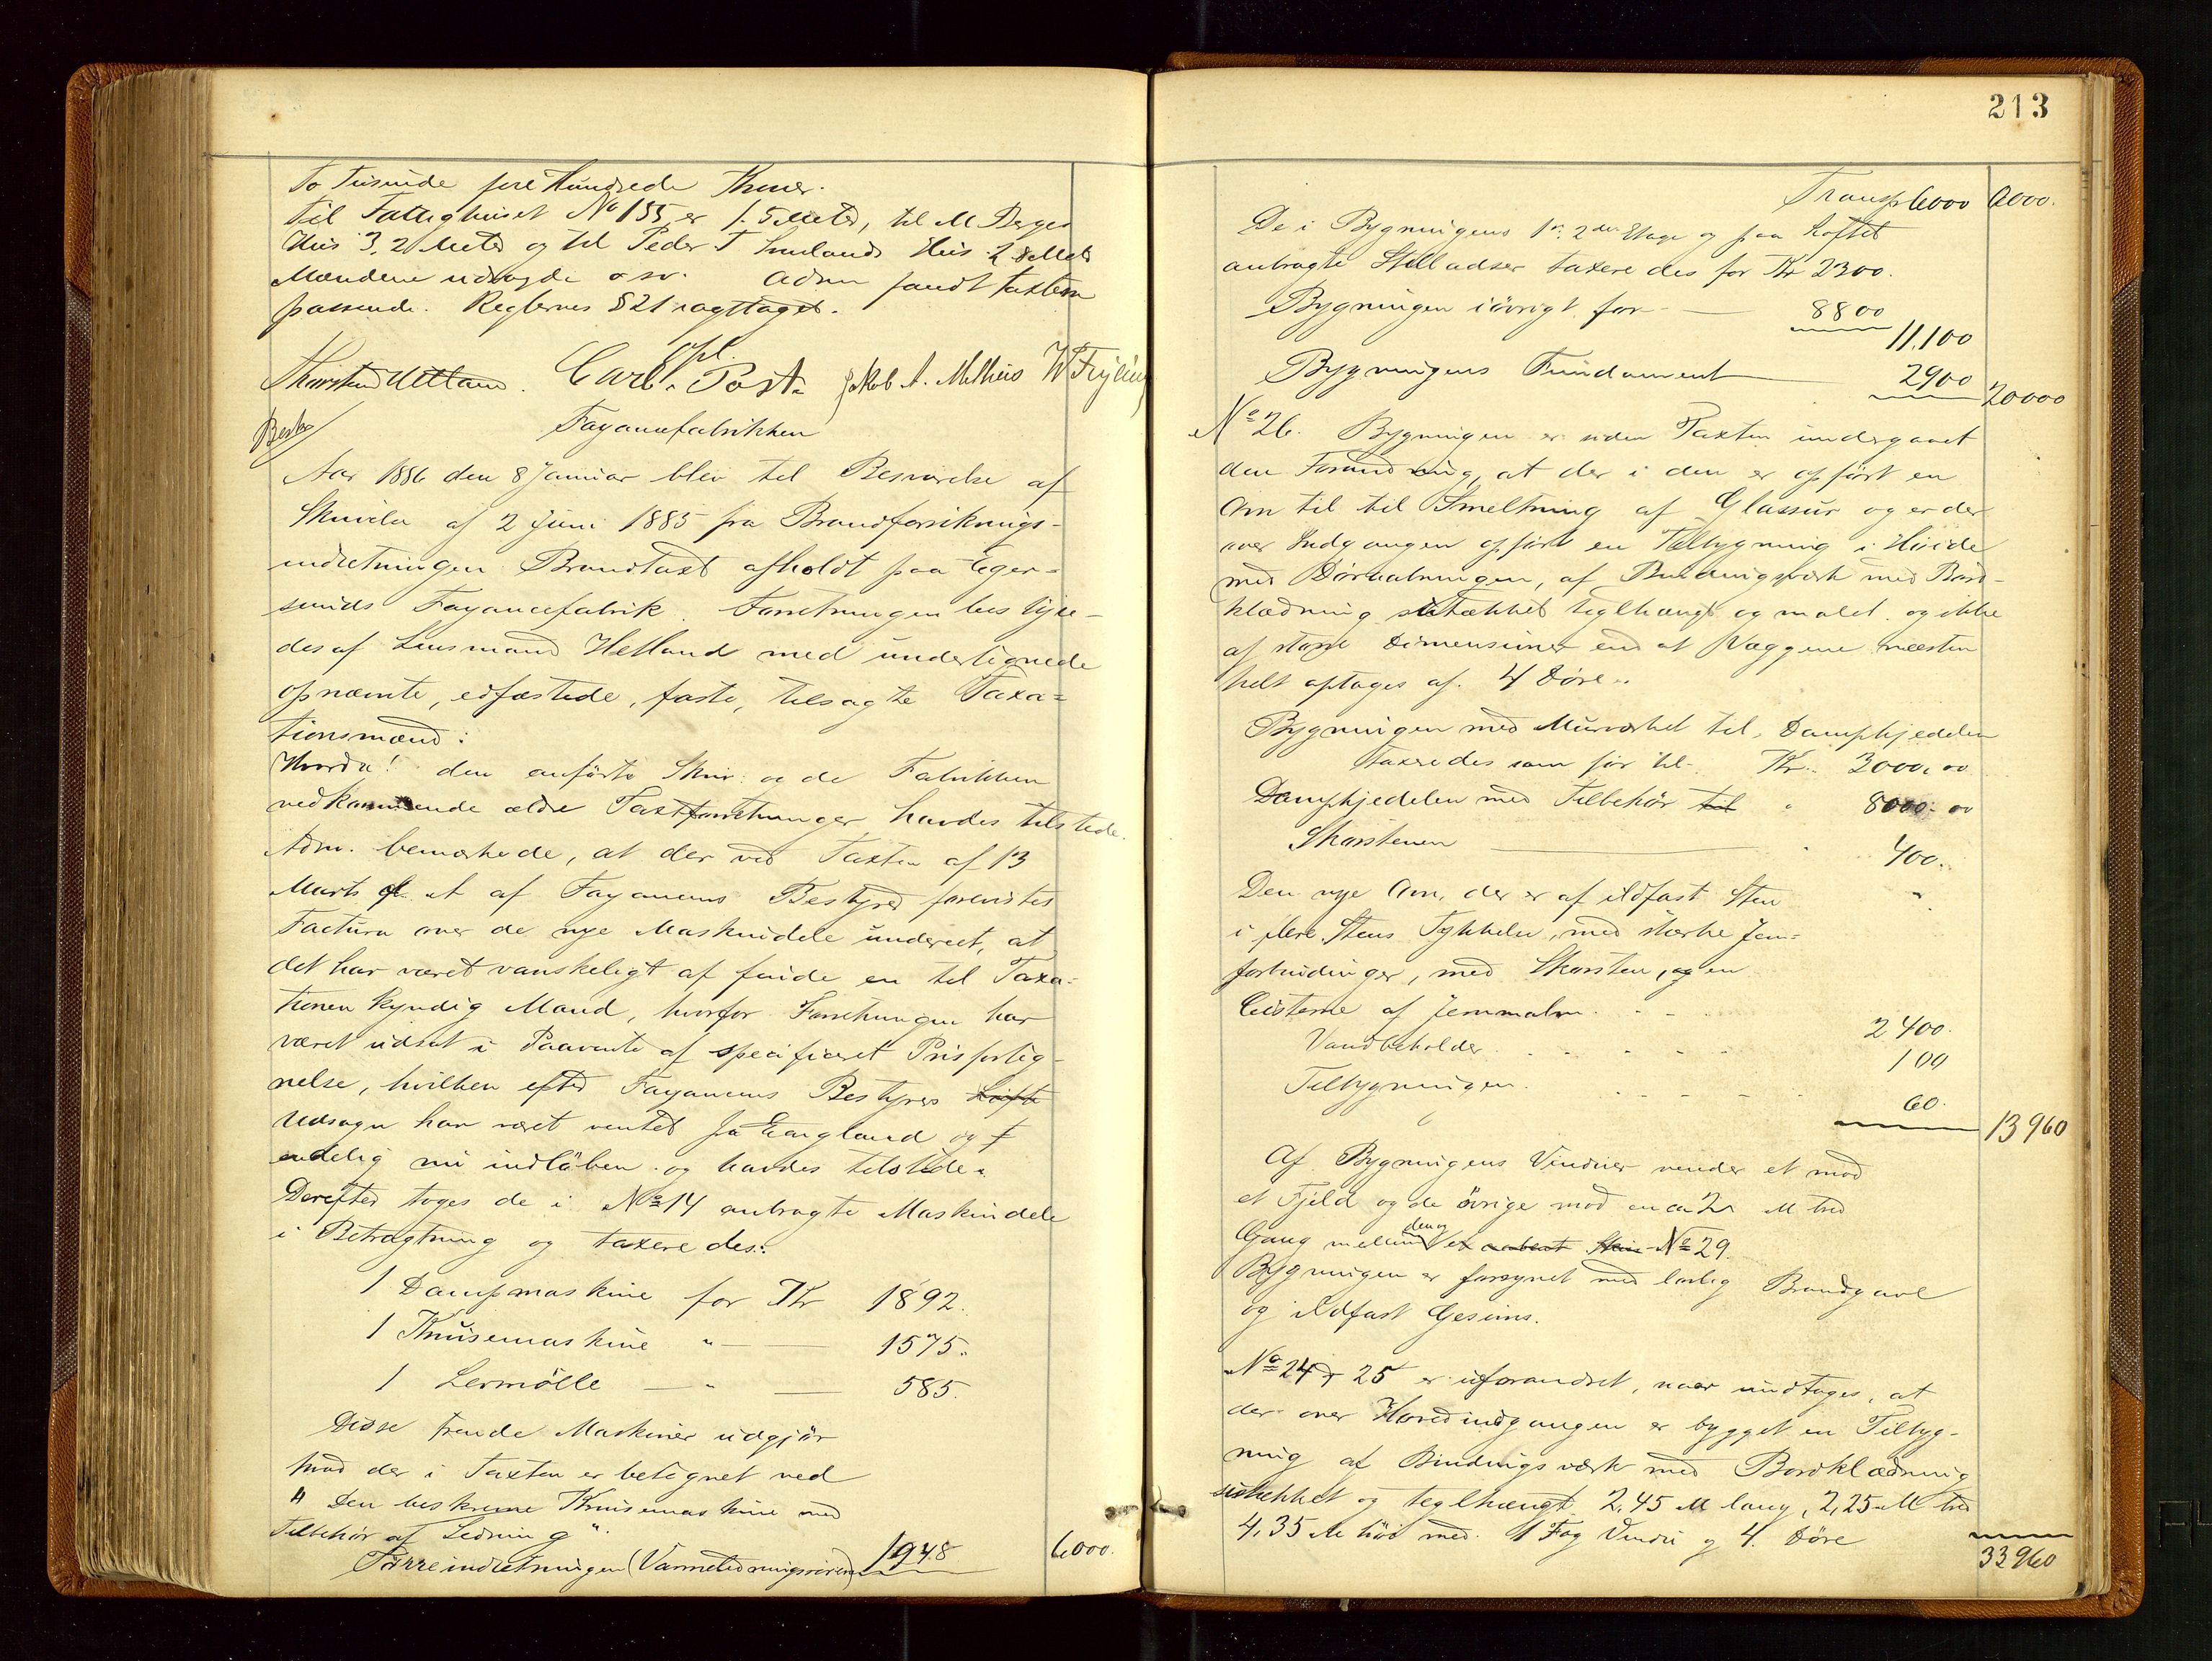 to tusinde fire Hundrede Kroner.
Til Fattighuset No 155 er 1.5 Meter, til M Berges
Hus 3,2 Meter og til Peder T Hus 2,8 Meter
Mændene udsagde o sv. Adm fandt taxten
passende. Reglernes § 21 iagttaget.
opl.
Thorsten Hetland. Carl. Post. Jakob A. Melhus W Feyling
Besk
Fayancefabrikken
Aar 1886 den 8 Januar blev til Besvarelse af
Skrivelse af 2 Juni 1885 fra Brandforsikrings-
indretningen Brandtaxt afholdt paa Eger-
sunds Fayancefabrik. Forretningen bestyre-
des af Lensmand Hetland med undertegnede
opnævnte, edfæstede, faste, tilsagte Taxa=
tionsmænd:
Hvorda! den anførte Skriv: og de Fabrikken
vedkommende ældre Taxtforretninger havdes tilstede.
Adm. bemærkede, at der ved Taxten af 13
Marts f. A af Fayancens Bestyrer forevistes
Factura over de nye Maskindele undereet, at
det har været vanskeligt at finde en til Taxa=
tionen kyndig Mand, hvorfor Forretningen har
været udsat i Paavente af specificeret Prisforteg-
nelse, hvilken efter Fayancens Bestyrers
Udsagn har været ventet fra England og
endelig nu indløben og havdes tilstede.
Derefter toges de i No 14 anbragte Maskindele
i Betragtning og taxeredes:
1 Dampmaskine for Kr 1892.
1 Knusemaskine " — 1575.
1 Lermølle — " — 585.
Disse trende Maskiner udgjør
hvad der i Taxten er betegnet ved
" Den beskrevne Knusemaskine med
Tilbehør af Ledning".
Tørreindretningen (Varmeledningsrørene) 1948 6000.
213
Transp 6000 6000.
De i Bygningens 1ste 2den Etage og paa Loftet
anbragte Stelladser taxeredes for Kr 2300.
Bygningen iøvrigt for — 8800
11,100
Bygningens Fundament — 2900 20000
No 26. Bygningen er siden Taxten undergaaet
den Forandring, at der i den er opført en
Ovn til til Smeltning af Glassur og er der
over Indgangen opført en Tilbygning i Høide
med Døraabningen, af Bindingsværk med Bord-
klædning sutækket teglhængt og malet. og ikke
af større Dimensioner end at Væggene næsten
helt optages af 4 Døre.
Bygningen med Murværket til Dampkjedelen
taxeredes som før til Kr. 3000,00
Dampkjedelen med Tilbehør til " 8000. 00
Skorstenen — " 400.
Den nye Ovn, der er af ildfast Sten
i flere Stens Tykkelse, med stærke Jern=
forbindinger, med Skorsten, og en
Cisterne af Jernmalm . - - 2400.
Vandbeholder . . . - - 100
Tilbygningen. . - - - . 60.
13960
Af Bygningens Vinduer vender et mod
et Fjeld og de øvrige mod en ca 2 M bred
Gang mellem den og No 29.
Bygningen er forsynet med lovlig Brandgavl
og ildfast Gesims.
No 24 & 25 er uforandret, naar undtages, at
der over Hovedindgangen er bygget en Tilbyg-
ning af Bindingsværk med Bordklædning
sutækket og teglhængt 2,45 M lang, 2,25 M bred
4,35 M høi med 1 Fag Vindu og 4 Døre
33960